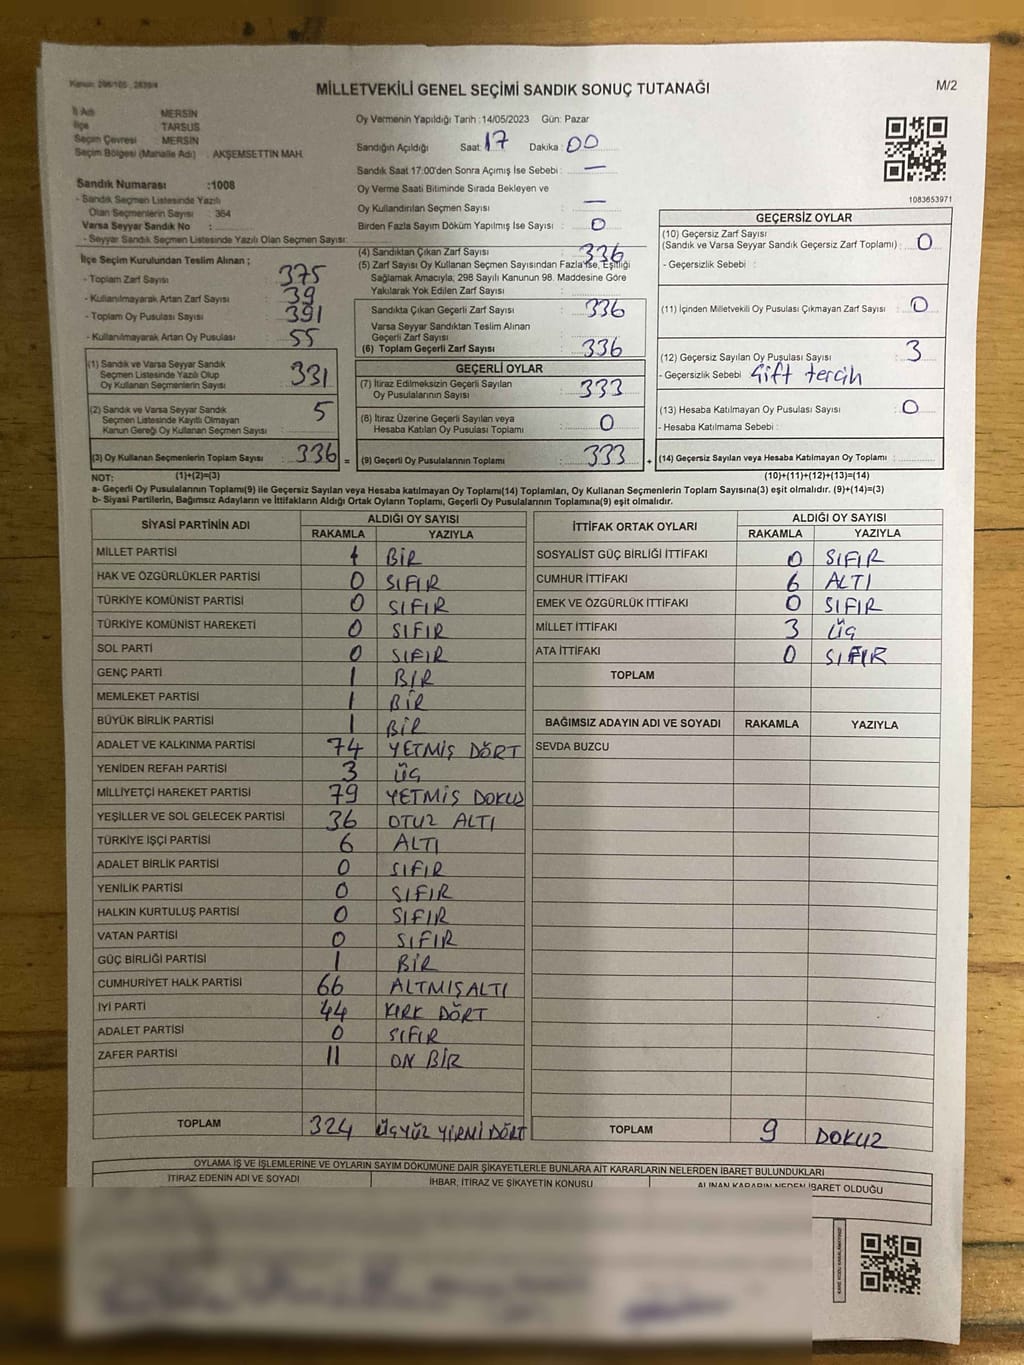 Kanun: 298/105 , 2839/4
MİLLETVEKİLİ GENEL SEÇİMİ SANDIK SONUÇ TUTANAĞI
M/2
İl Adı : MERSİN
İlçe : TARSUS
Seçim Çevresi : MERSİN
Seçim Bölgesi (Mahalle Adı) : AKŞEMSETTİN MAH.
Sandık Numarası :1008
- Sandık Seçmen Listesinde Yazılı
Olan Seçmenlerin Sayısı : 364
Varsa Seyyar Sandık No :
- Seyyar Sandık Seçmen Listesinde Yazılı Olan Seçmen Sayısı:
Oy Vermenin Yapıldığı Tarih :14/05/2023 Gün: Pazar
Sandığın Açıldığı Saat: 17 Dakika: 00
Sandık Saat 17:00'den Sonra Açımış İse Sebebi : —
Oy Verme Saati Bitiminde Sırada Bekleyen ve
Oy Kullandırılan Seçmen Sayısı : —
Birden Fazla Sayım Döküm Yapılmış İse Sayısı : 0
1083653971
İlçe Seçim Kurulundan Teslim Alınan ;
- Toplam Zarf Sayısı : 375
- Kullanılmayarak Artan Zarf Sayısı : 39
- Toplam Oy Pusulası Sayısı : 391
- Kullanılmayarak Artan Oy Pusulası : 55
(1) Sandık ve Varsa Seyyar Sandık
Seçmen Listesinde Yazılı Olup
Oy Kullanan Seçmenlerin Sayısı : 331
(2) Sandık ve Varsa Seyyar Sandık
Seçmen Listesinde Kayıtlı Olmayan
Kanun Gereği Oy Kullanan Seçmen Sayısı : 5
(3) Oy Kullanan Seçmenlerin Toplam Sayısı : 336 =
(4) Sandıktan Çıkan Zarf Sayısı : 336
(5) Zarf Sayısı Oy Kullanan Seçmen Sayısından Fazla İse, Eşitliği
Sağlamak Amacıyla, 298 Sayılı Kanunun 98. Maddesine Göre
Yakılarak Yok Edilen Zarf Sayısı :
Sandıkta Çıkan Geçerli Zarf Sayısı : 336
Varsa Seyyar Sandıktan Teslim Alınan
Geçerli Zarf Sayısı :
(6) Toplam Geçerli Zarf Sayısı : 336
GEÇERLİ OYLAR
(7) İtiraz Edilmeksizin Geçerli Sayılan
Oy Pusulalarının Sayısı : 333
(8) İtiraz Üzerine Geçerli Sayılan veya
Hesaba Katılan Oy Pusulası Toplamı : 0
(9) Geçerli Oy Pusulalarının Toplamı : 333 +
GEÇERSİZ OYLAR
(10) Geçersiz Zarf Sayısı
(Sandık ve Varsa Seyyar Sandık Geçersiz Zarf Toplamı) : 0
- Geçersizlik Sebebi :
(11) İçinden Milletvekili Oy Pusulası Çıkmayan Zarf Sayısı : 0
(12) Geçersiz Sayılan Oy Pusulası Sayısı : 3
- Geçersizlik Sebebi : Çift tercih
(13) Hesaba Katılmayan Oy Pusulası Sayısı : 0
- Hesaba Katılmama Sebebi :
(14) Geçersiz Sayılan veya Hesaba Katılmayan Oy Toplamı :
NOT: (1)+(2)=(3) (10)+(11)+(12)+(13)=(14)
a- Geçerli Oy Pusulalarının Toplamı(9) ile Geçersiz Sayılan veya Hesaba katılmayan Oy Toplamı(14) Toplamları, Oy Kullanan Seçmenlerin Toplam Sayısına(3) eşit olmalıdır. (9)+(14)=(3)
b- Siyasi Partilerin, Bağımsız Adayların ve İttifakların Aldığı Oyların Toplamı, Geçerli Oy Pusulalarının Toplamına(9) eşit olmalıdır.
SİYASİ PARTİNİN ADI ALDIĞI OY SAYISI
RAKAMLA YAZIYLA
MİLLET PARTİSİ 1 BİR
HAK VE ÖZGÜRLÜKLER PARTİSİ 0 SIFIR
TÜRKİYE KOMÜNİST PARTİSİ 0 SIFIR
TÜRKİYE KOMÜNİST HAREKETİ 0 SIFIR
SOL PARTİ 0 SIFIR
GENÇ PARTİ 1 BİR
MEMLEKET PARTİSİ 1 BİR
BÜYÜK BİRLİK PARTİSİ 1 BİR
ADALET VE KALKINMA PARTİSİ 74 YETMİŞ DÖRT
YENİDEN REFAH PARTİSİ 3 ÜÇ
MİLLİYETÇİ HAREKET PARTİSİ 79 YETMİŞ DOKUZ
YEŞİLLER VE SOL GELECEK PARTİSİ 36 OTUZ ALTI
TÜRKİYE İŞÇİ PARTİSİ 6 ALTI
ADALET BİRLİK PARTİSİ 0 SIFIR
YENİLİK PARTİSİ 0 SIFIR
HALKIN KURTULUŞ PARTİSİ 0 SIFIR
VATAN PARTİSİ 0 SIFIR
GÜÇ BİRLİĞİ PARTİSİ 1 BİR
CUMHURİYET HALK PARTİSİ 66 ALTMIŞALTI
İYİ PARTİ 44 KIRK DÖRT
ADALET PARTİSİ 0 SIFIR
ZAFER PARTİSİ 11 ON BİR
TOPLAM 324 ÜÇYÜZ YİRMİ DÖRT
İTTİFAK ORTAK OYLARI ALDIĞI OY SAYISI
RAKAMLA YAZIYLA
SOSYALİST GÜÇ BİRLİĞİ İTTİFAKI 0 SIFIR
CUMHUR İTTİFAKI 6 ALTI
EMEK VE ÖZGÜRLÜK İTTİFAKI 0 SIFIR
MİLLET İTTİFAKI 3 ÜÇ
ATA İTTİFAKI 0 SIFIR
TOPLAM
BAĞIMSIZ ADAYIN ADI VE SOYADI RAKAMLA YAZIYLA
SEVDA BUZCU
TOPLAM 9 DOKUZ
OYLAMA İŞ VE İŞLEMLERİNE VE OYLARIN SAYIM DÖKÜMÜNE DAİR ŞİKAYETLERLE BUNLARA AİT KARARLARIN NELERDEN İBARET BULUNDUKLARI
İTİRAZ EDENİN ADI VE SOYADI İHBAR, İTİRAZ VE ŞİKAYETİN KONUSU ALINAN KARARIN NEDEN İBARET OLDUĞU